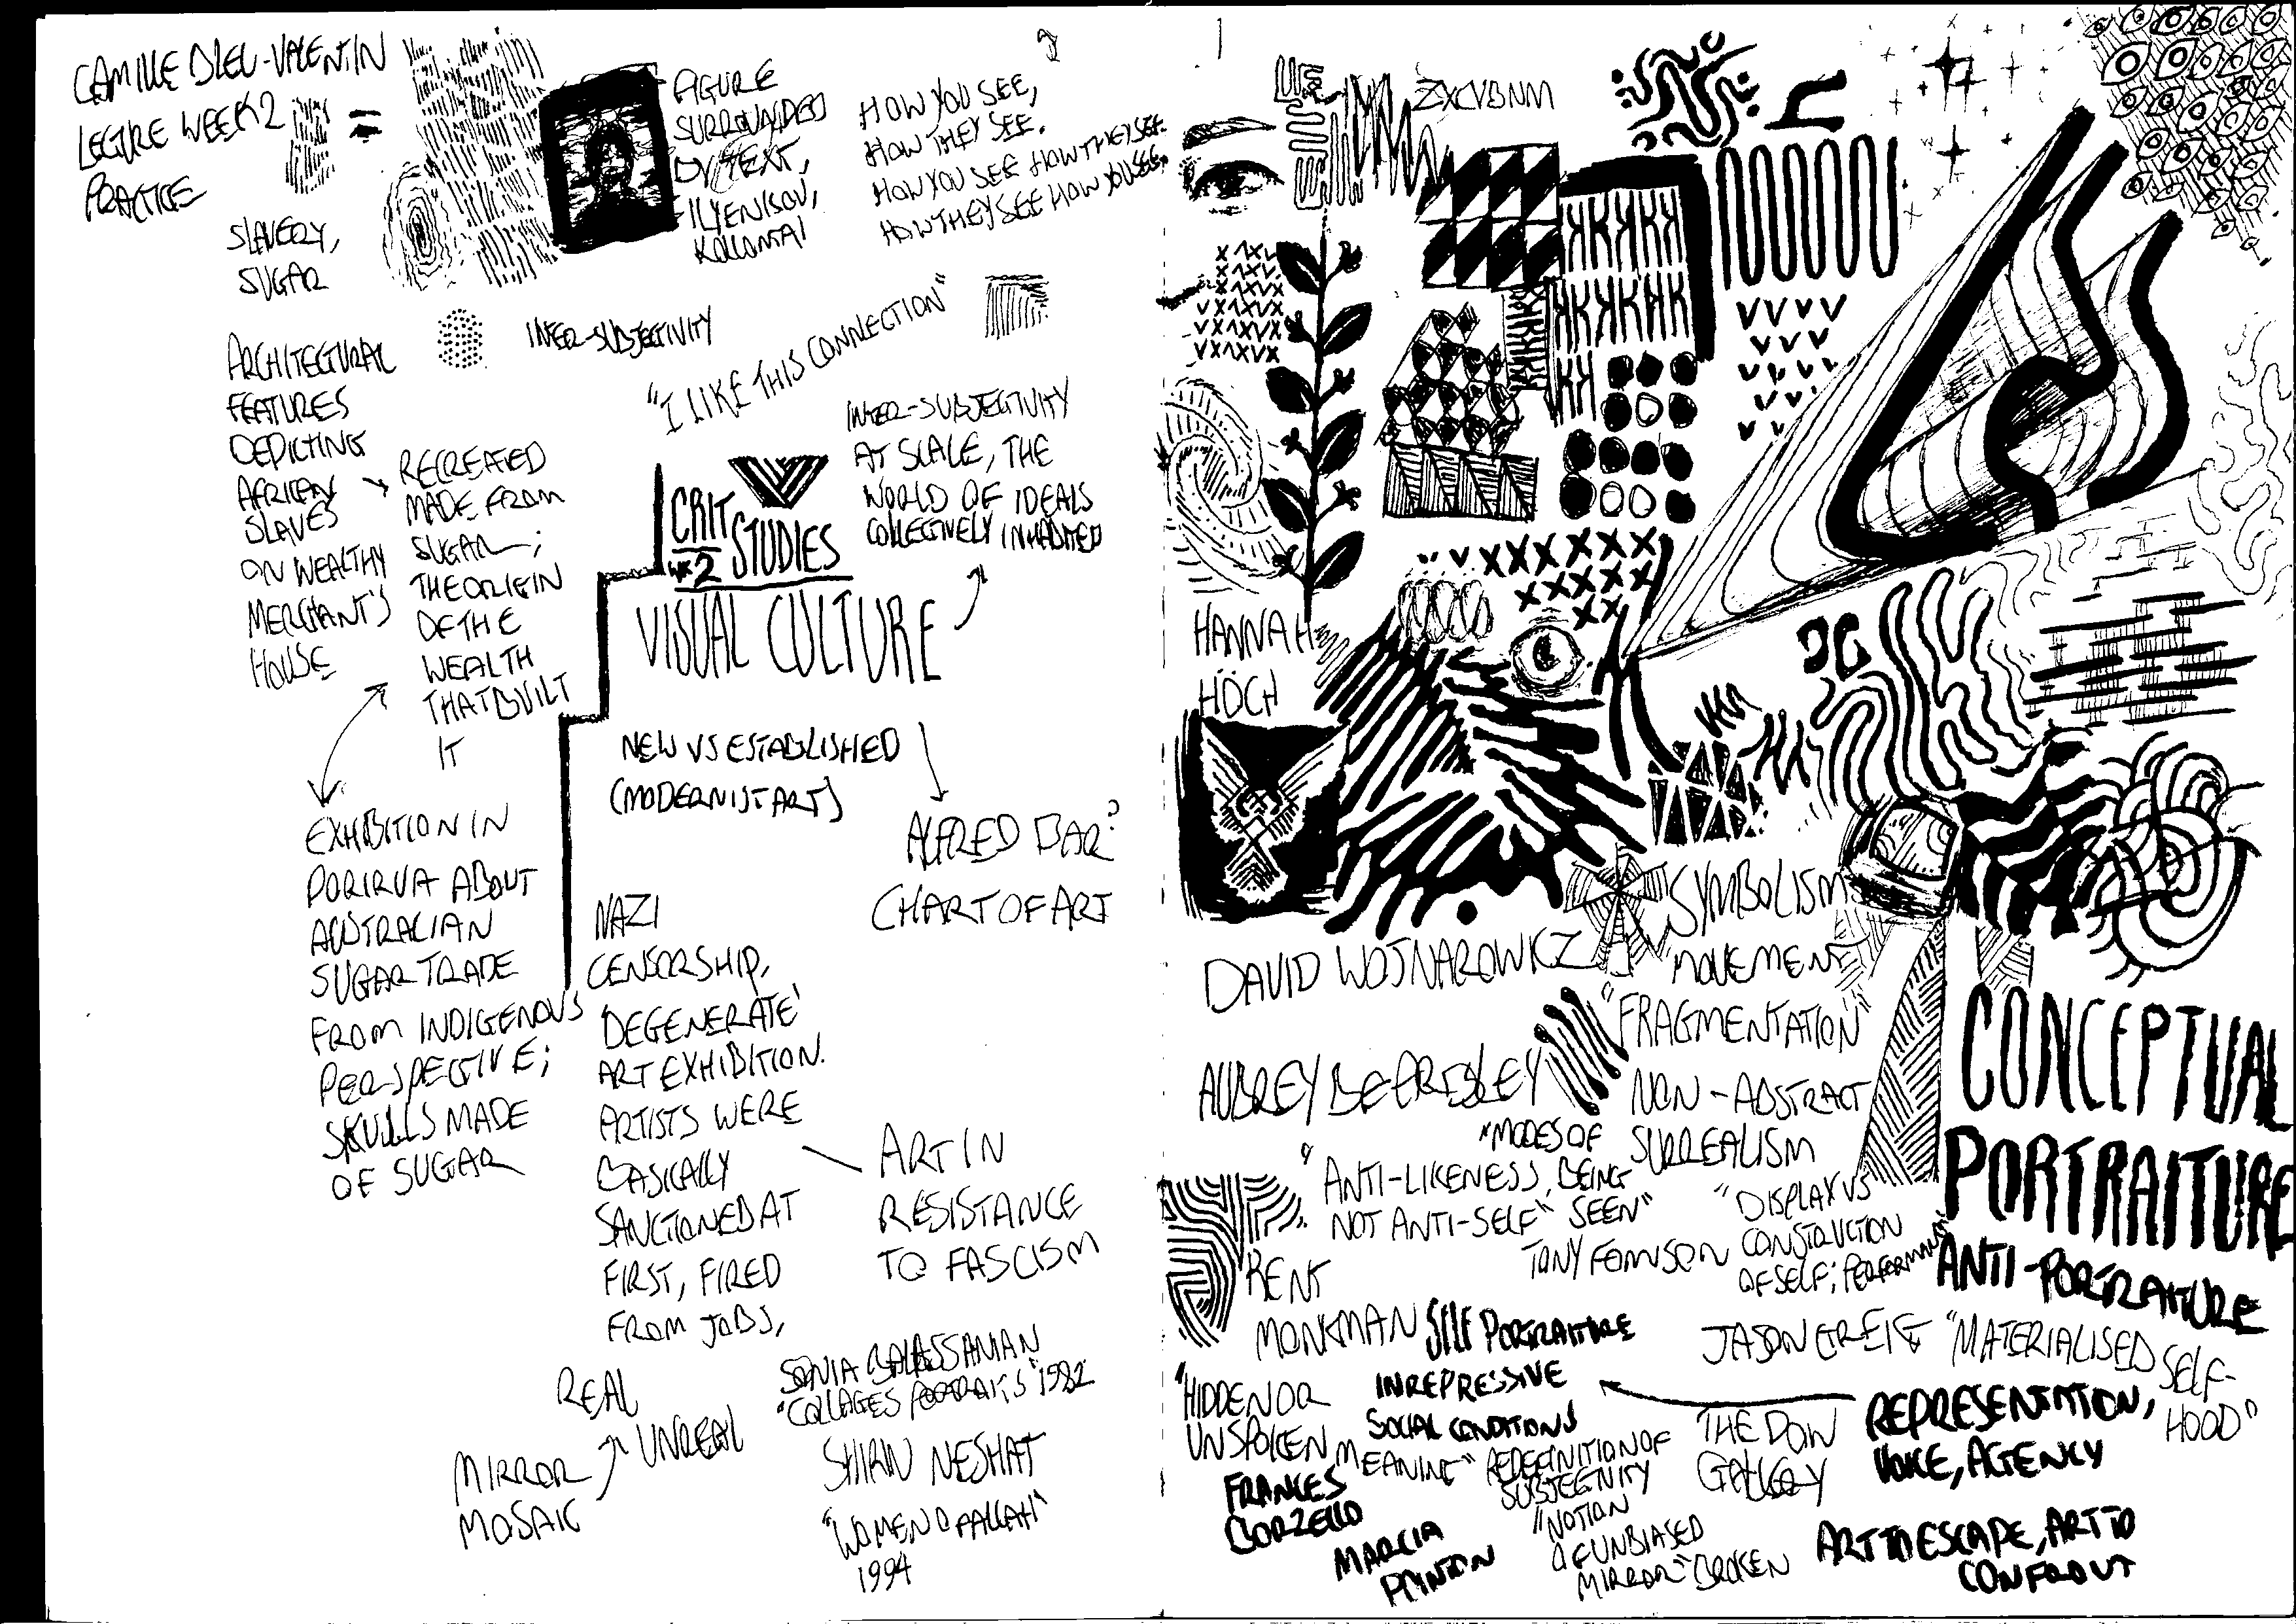 CAMILLE BLEU-VALENTIN
LECTURE WEEK 2
PRACTICE
=
SLAVERY,
SUGAR
FIGURE
SURROUNDED
BY TEXT,
KOLLONTAI
HOW YOU SEE,
HOW THEY SEE.
HOW YOU SEE HOW THEY SEE.
HOW THEY SEE HOW YOU SEE.
ARCHITECTURAL
FEATURES
DEPICTING
AFRICAN
SLAVES
ON WEALTHY
MERCHANT'S
HOUSE
RECREATED
MADE FROM
SUGAR;
THE ORIGIN
OF THE
WEALTH
THAT BUILT
IT
INTER-SUBJECTIVITY
"I LIKE THIS CONNECTION"
INTER-SUBJECTIVITY
AT SCALE, THE
WORLD OF IDEALS
COLLECTIVELY INHABITED
CRIT
WK 2 STUDIES
VISUAL CULTURE
NEW VS ESTABLISHED
(MODERNIST ART)
ALFRED BAR?
CHART OF ART
EXHIBITION IN
PORIRUA ABOUT
AUSTRALIAN
SUGAR TRADE
FROM INDIGENOUS
PERSPECTIVE;
SKULLS MADE
OF SUGAR
NAZI
CENSORSHIP,
'DEGENERATE'
ART EXHIBITION.
ARTISTS WERE
BASICALLY
SANCTIONED AT
FIRST, FIRED
FROM JOBS,
ART IN
RESISTANCE
TO FASCISM
REAL
UNREAL
MIRROR
MOSAIC
SONIA BALASSANIAN
"COLLAGES PORTRAITS" 1982
SHIRIN NESHAT
"WOMEN OF ALLAH"
1994
ZXCVBNM
HANNAH
HÖCH
DAVID WOJNAROWICZ
SYMBOLISM
MOVEMENT
"FRAGMENTATION"
AUBREY BEARDSLEY
NON-ABSTRACT
SURREALISM
"MODES OF
BEING
SEEN"
"ANTI-LIKENESS,
NOT ANTI-SELF"
"DISPLAY VS
CONSTRUCTION
OF SELF; PERFORMANCE"
TONY FOMISON
CONCEPTUAL
PORTRAITURE
ANTI-PORTRAITURE
KENT
MONKMAN
SELF PORTRAITURE
IN REPRESSIVE
SOCIAL CONDITIONS
JASON GREIG
"MATERIALISED SELF-
HOOD"
"HIDDEN OR
UNSPOKEN MEANING"
REDEFINITION OF
SUBJECTIVITY
"NOTION
OF UNBIASED
MIRROR" BROKEN
THE DOW
GALLERY
REPRESENTATION,
VOICE, AGENCY
FRANCES
BORZELLO
MARCIA
POINTON
ART TO ESCAPE, ART TO
CONFRONT